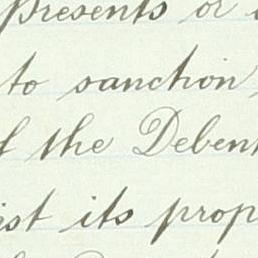 presents or
to sanction
the Debent
ist its prop